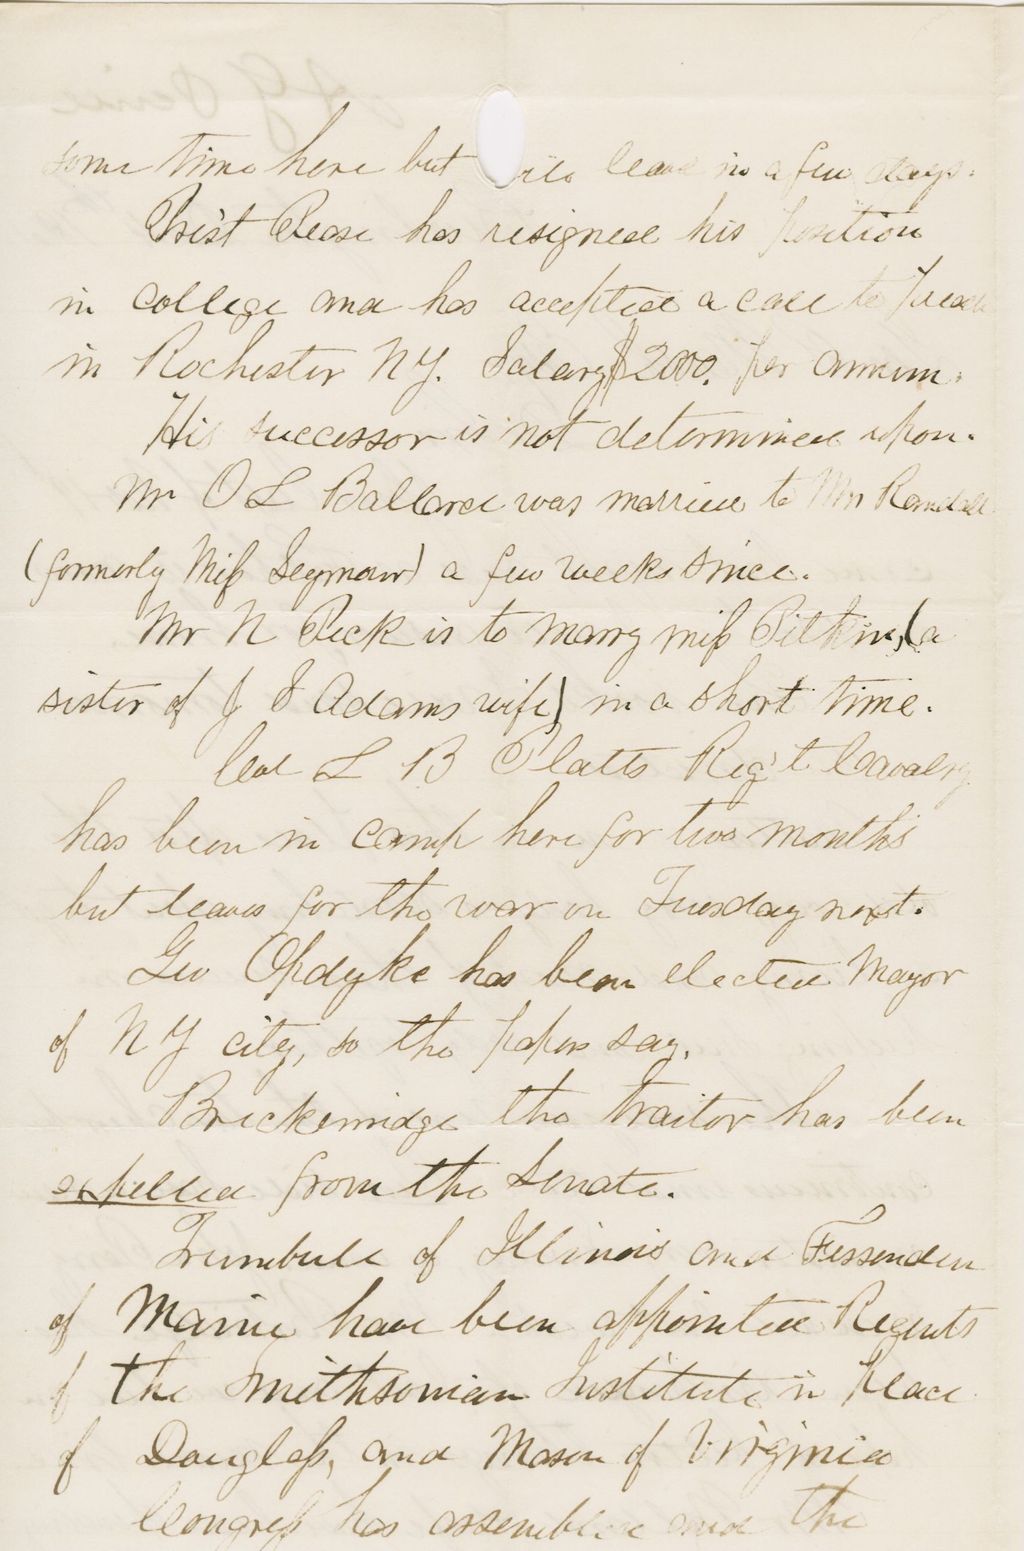 some time here but will leave in a few days.
Pres't Pease has resigned his position
in college and has accepted a call to preach
in Rochester N.Y. Salary $2000. per annum.
His successor is not determined upon.
Mr O L Ballard was married to Mrs Randall
(formerly Miss Seymour) a few weeks since.
Mr N Peck is to marry miss Pitkin, (a
sister of J S Adams wife) in a short time.
Col L B Platts Reg't Cavalry
has been in camp here for two months
but leaves for the war on Tuesday next.
Geo Opdyke has been elected Mayor
of N Y city, so the papers say.
Breckenridge the traitor has been
expelled from the Senate.
Trumbull of Illinois and Fessenden
of Maine have been appointed Regents
of the Smithsonian Institute in place
of Douglass, and Mason of Virginia
Congress has assembled and the